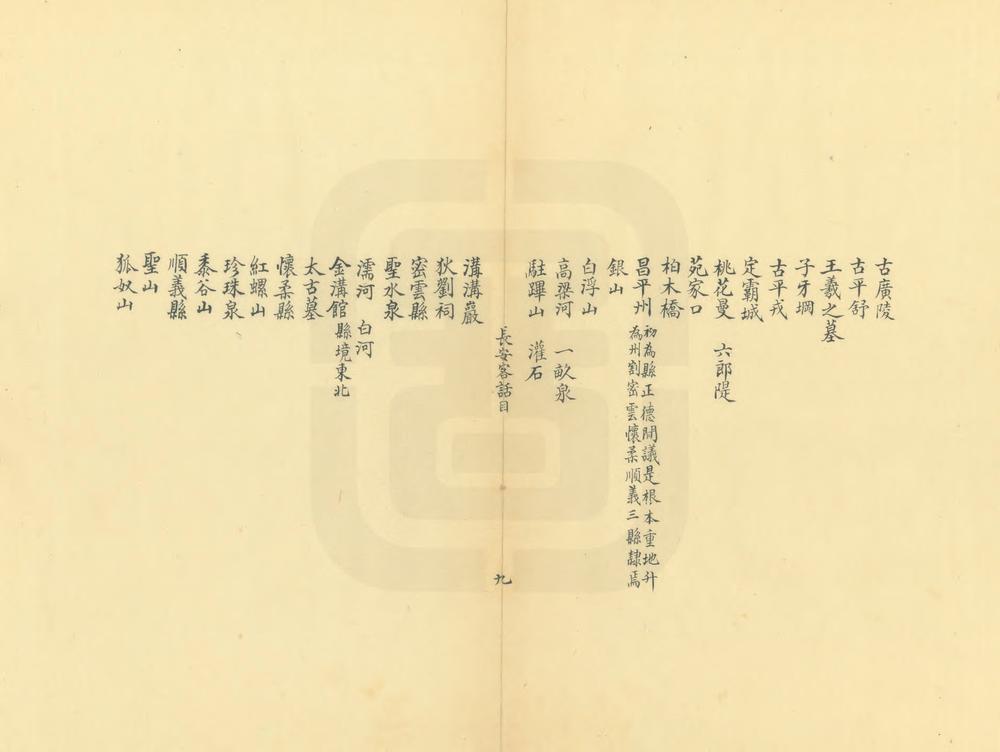 古廣陵
古平舒
王羲之墓
子牙堈
古平戎
定霸城
桃花蔓　六郎隄
苑家口
柏木橋
昌平州　初為縣正德間議是根本重地升
為州割密雲懷柔順義三縣隸焉
銀山
白浮山
高梁河　一畝泉
駐蹕山　灌石
長安客話目
九
溝溝巖
狄劉祠
密雲縣
聖水泉
濡河　白河
金溝館　縣境東北
太古墓
懷柔縣
紅螺山
珍珠泉
黍谷山
順義縣
聖山
狐奴山